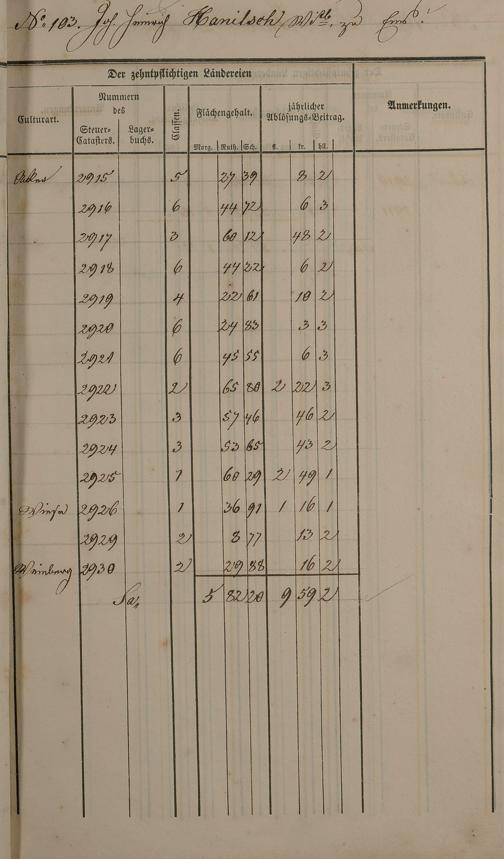 No. 103. Joh. Heinrich Hanitsch, Wtb. zu Ems.
Der zehntpflichtigen Ländereien
Culturart.
Nummern des
Steuer-Catasters.
Lager-buchs.
Classen.
Flächengehalt.
Morg. Ruth. Sch.
jährlicher Ablösungs-Beitrag.
fl. kr. hll.
Anmerkungen.
Acker 2915 5 27 39 8 2
2916 6 44 72 6 3
2917 3 60 12 48 2
2918 6 44 22 6 2
2919 4 22 61 10 2
2920 6 24 83 3 3
2921 6 45 55 6 3
2922 2 65 80 2 22 3
2923 3 57 46 46 2
2924 3 53 85 43 2
2925 1 60 29 2 49 1
Wiese 2926 1 36 91 1 16 1
2929 2 8 77 13 2
Weinberg 2930 2 29 88 16 2
Sa. 5 82 20 9 59 2